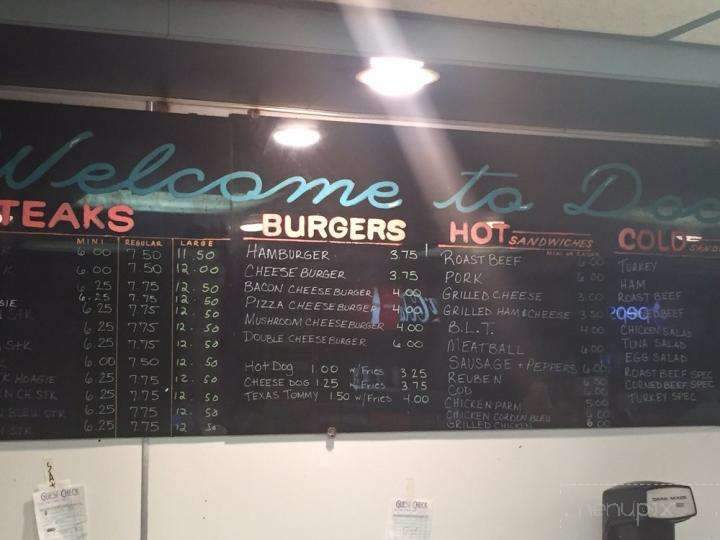 Welcome to Doc
TEAKS
MINI REGULAR LARGE
6.00 7.50 11.50
K 6.00 7.50 12.00
6.25 7.75 12.50
GIE 6.25 7.75 12.50
STK 6.25 7.75 12.50
6.25 7.75 12.50
STK 6.25 7.75 12.50
6.00 7.50 12.50
K HOAGIE 6.25 7.75 12.50
NCH STK 6.25 7.75 12.50
BLEU STK 6.25 7.75 12.50
STK 6.25 7.75 12.50
BURGERS
HAMBURGER 3.75
CHEESE BURGER 3.75
BACON CHEESEBURGER 4.00
PIZZA CHEESEBURGER 4.00
MUSHROOM CHEESEBURGER 4.00
DOUBLE CHEESEBURGER 6.00
HOT DOG 1.00 w/FRIES 3.25
CHEESE DOG 1.25 w/FRIES 3.75
TEXAS TOMMY 1.50 w/FRIES 4.00
HOT SANDWICHES
ROAST BEEF 6.50
PORK 6.00
GRILLED CHEESE 3.00
GRILLED HAM & CHEESE 3.50
B.L.T. 4.00
MEATBALL 6.00
SAUSAGE + PEPPERS 6.00
REUBEN 6.50
COD 6.00
CHICKEN PARM 5.00
CHICKEN CORDEN BLEU 6.00
GRILLED CHICKEN 6.00
COLD SAND
TURKEY
HAM
ROAST BEEF
BEEF
CHICKEN SALAD
TUNA SALAD
EGG SALAD
ROAST BEEF SPEC
CORNED BEEF SPEC
TURKEY SPEC
TAX
GUEST CHECK
GUEST CHECK
menupix